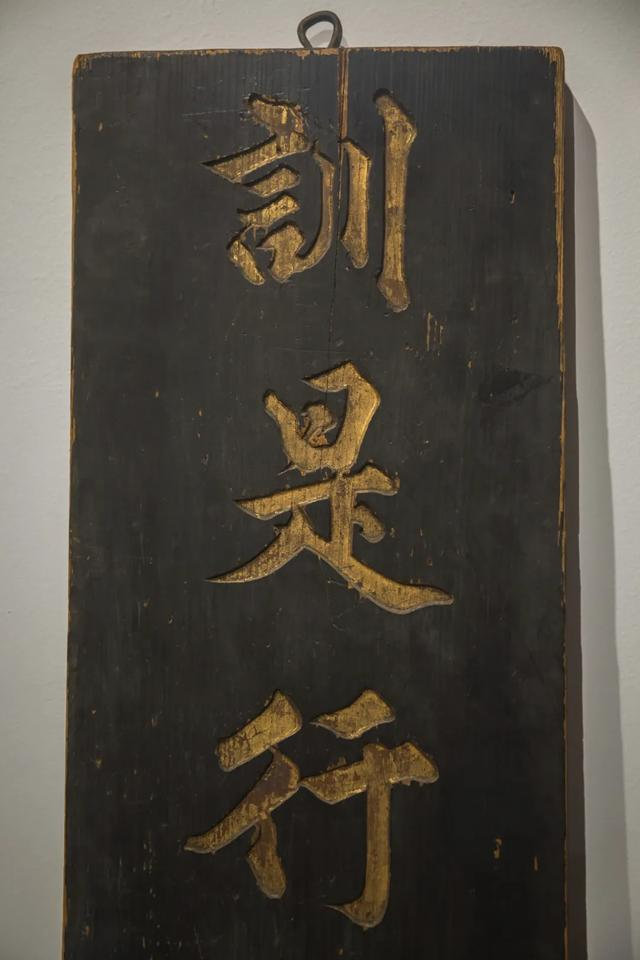 訓是行